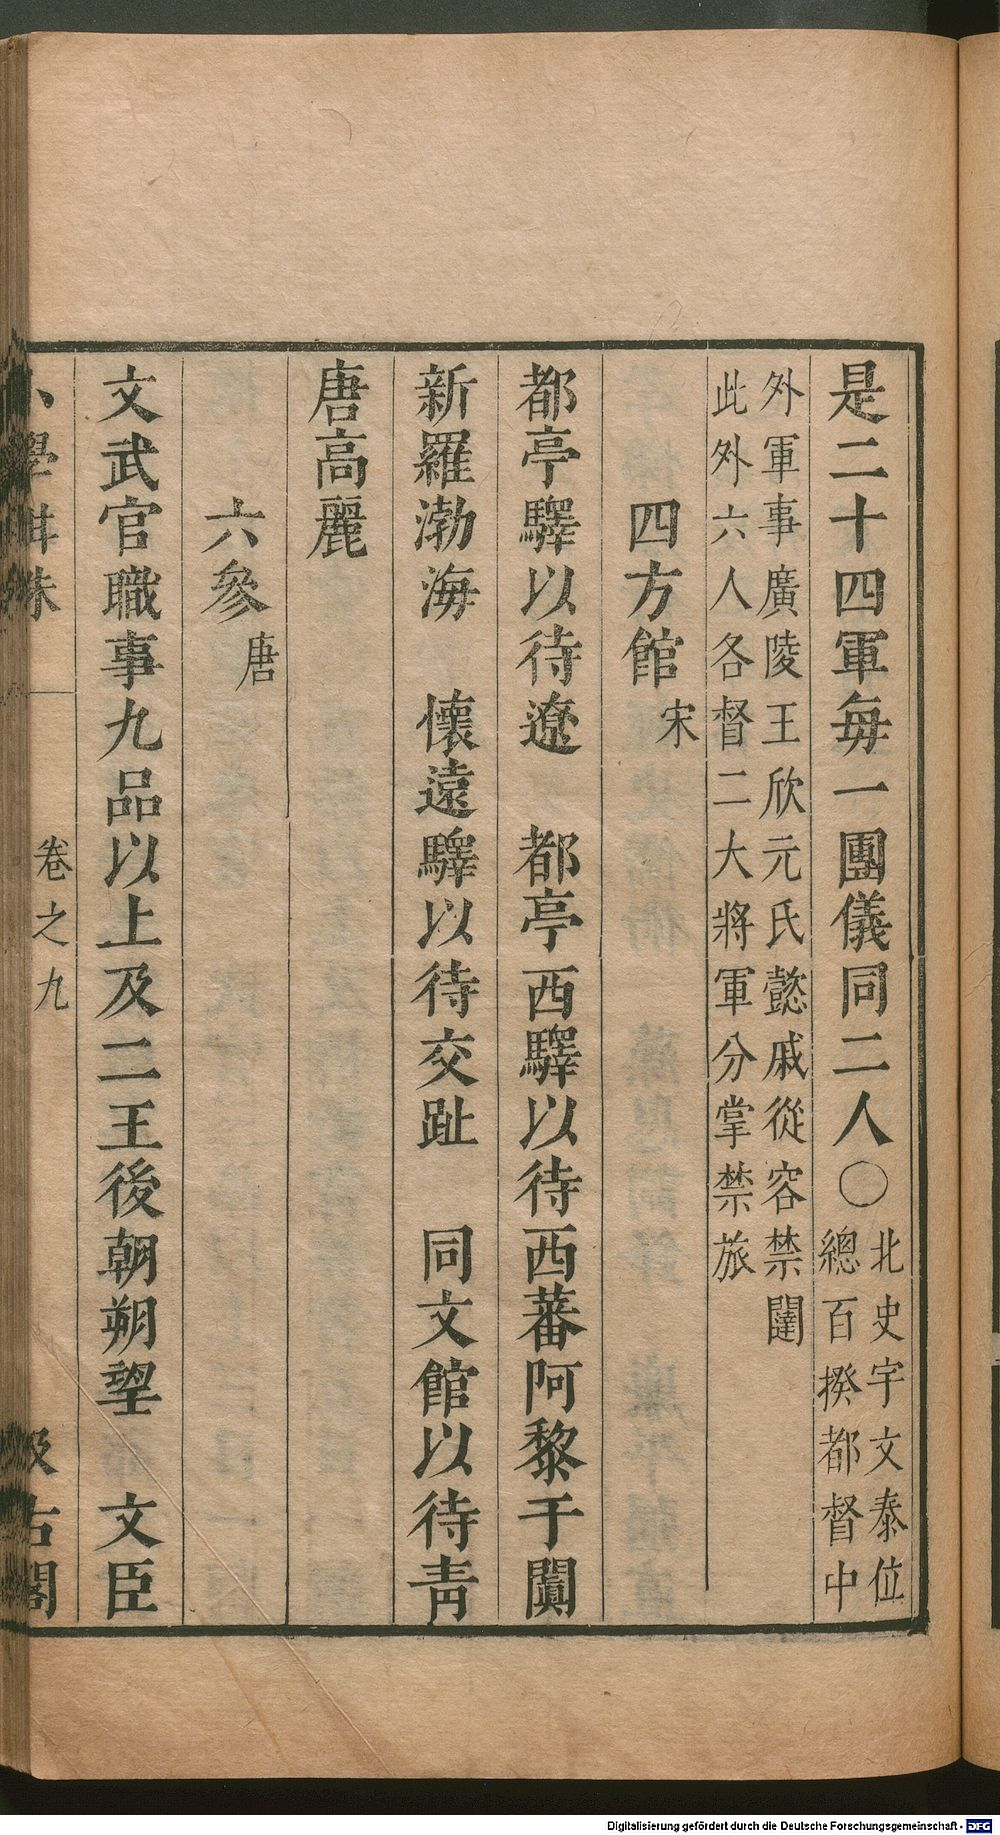 是二十四軍每一團儀同二人○北史宇文泰位總百揆都督中
外軍事廣陵王欣元氏懿戚從容禁闥
此外六人各督二大將軍分掌禁旅
四方館宋
都亭驛以待遼　都亭西驛以待西蕃阿黎于闐
新羅渤海　懷遠驛以待交趾　同文館以待靑
唐高麗
六參唐
文武官職事九品以上及二王後朝朔望　文臣
小學紺珠　卷之九　汲古閣
Digitalisierung gefördert durch die Deutsche Forschungsgemeinschaft - DFG